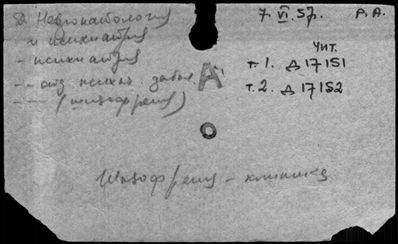 Д Невропатология
и психиатрия
- психиатрия
-- отд. психич. забол.
--- (шизофрения)
7. VI. 57. Р. А.
Чит.
т. 1. Д 17151
т. 2. Д 17152
А
Шизофрения - клиника